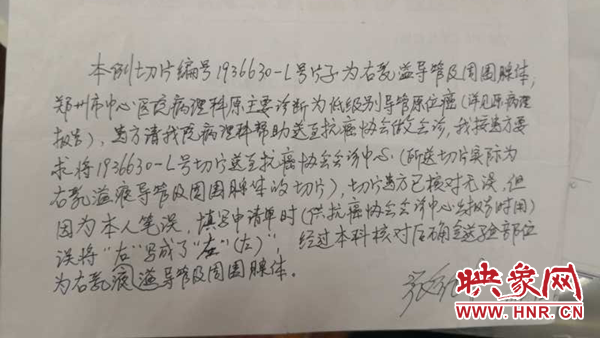 本例切片编号1936630-L号片子为右乳溢导管及周围腺体,
郑州市中心医院病理科原主要诊断为低级别导管原位癌(详见原病理
报告),患方请我院病理科帮助送至抗癌协会做会诊,我按患方要
求将1936630-L号切片送至抗癌协会会诊中心(所送切片实际为
右乳溢液导管及周围腺体的切片),切片患方已核对无误,但
因为本人笔误,填写申请单时(供抗癌协会会诊中心出报告时用)
误将“右”写成了“左”(左)”,经过本科核对后确定送验部位
为右乳液溢导管及周围腺体。
映象网
WWW.HNR.CN